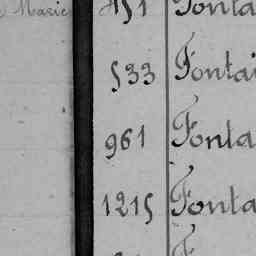 Marie 451 Fonta
533 Fontai
961 Fonta
1215 Fonta
F